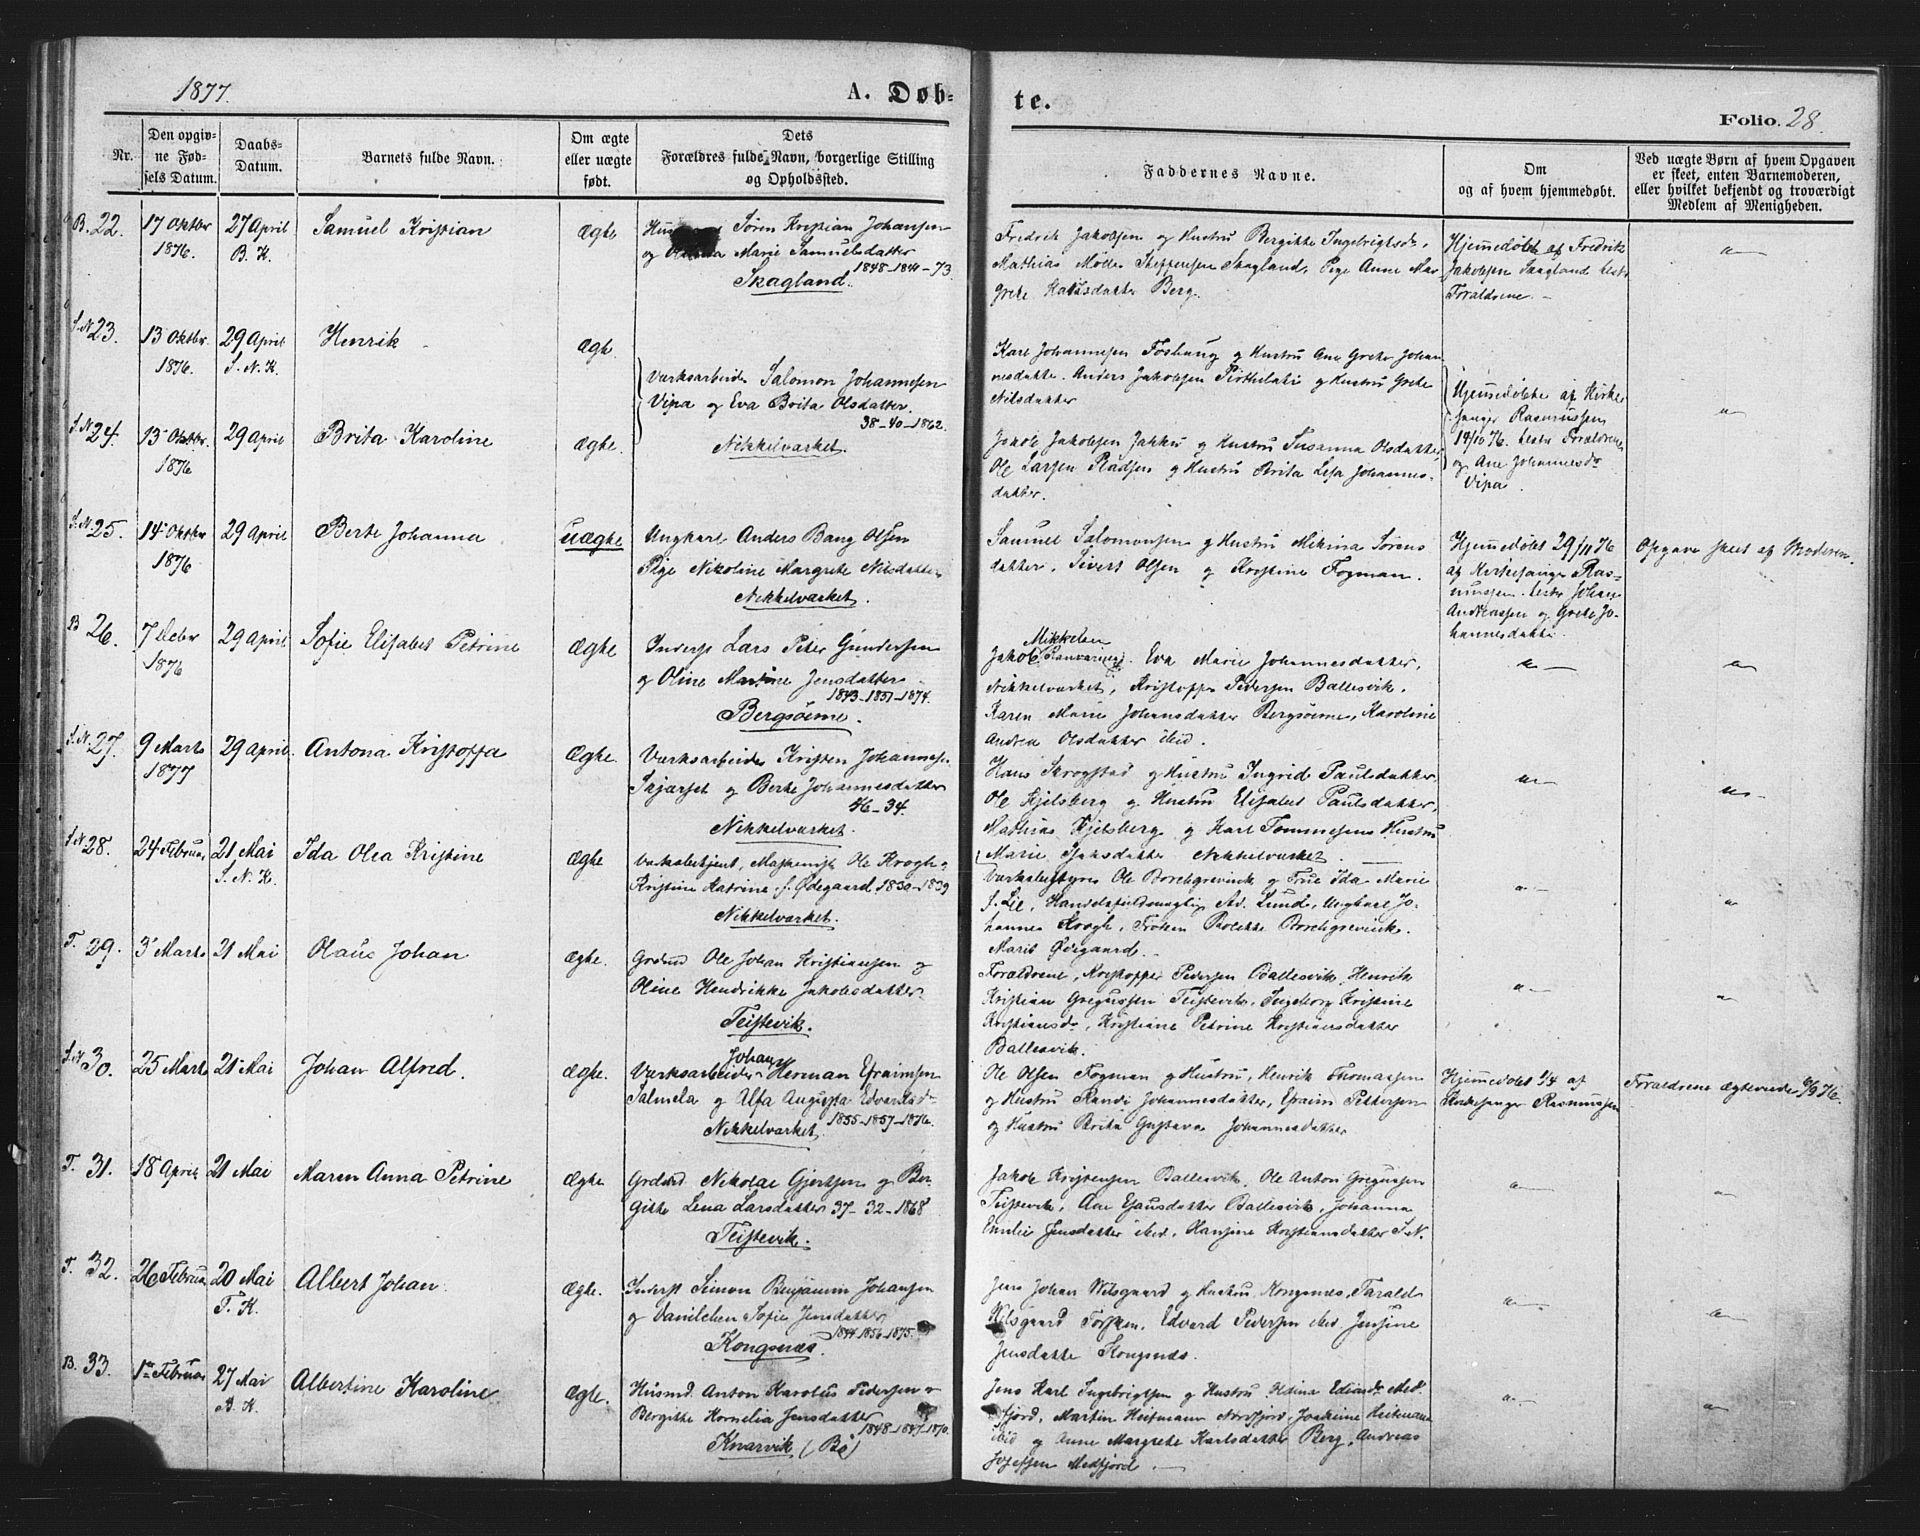 1877.
A. Døb-
te.
Folio. 28.
Nr.
Den opgiv-
ne Fød-
sels Datum.
Daabs-
Datum.
Barnets fulde Navn.
Om ægte
eller uægte
født.
Dets
Forældres fulde Navn, borgerlige Stilling
og Opholdssted.
Faddernes Navne.
Om
og af hvem hjemmedøbt.
Ved uægte Børn af hvem Opgaven
er skeet, enten Barnemoderen,
eller hvilket bekjendt og troværdigt
Medlem af Menigheden.
B. 22. 17 Oktbr 27 April Samuel Kristian Ægte Søren Kristian Johansen
1876. B. K. og Marie Samuelsdatter
1848-1841-73
Skagland.
Fredrik Jakobsen og Hustru Bergitte Ingebrigtsdr,
Mathias Skagland, Pige Anne Mar
grete Berg.
Hjemmedøbt af Fredrik
Jakobsen Skagland testr
Forældrene. –
S.N. 23. 13 Oktbr. 29 April Henrik Ægte.
1876. S. N. K.
Værksarbeider Salomon Johannesen
Vipa og Eva Brita Olsdatter.
38-40-1862.
Nikkelværket.
Karl Johannesen Foshaug og Hustru Ane Grete Johan
nesdatter. Anders Jakobsen og Hustru Grete
Nilsdatter
Hjemmedøbte af Kirke
sanger Rasmussen
14/10 76. testr Forældrene
og Ane Johannesdr
Vipa.
S.N. 24. 13 Oktbr. 29 April Brita Karoline Ægte.
1876
Jakob Jakobsen og Hustru Susanna Olsdatter,
Ole Larsen og Hustru Brita Lisa Johannes-
datter.
S.N. 25. 14 Oktbr 29 April Berte Johanna Uægte
1876
Ungkarl Anders Bang Olsen
Pige Nikoline Margrete Nilsdatter
Nikkelværket.
Samuel Salomonsen og Hustru Mikina Sørens
datter, Sivert Olsen og Kristine Fogman.
Hjemmedøbt 29/11 76
af Kirkesanger Ras-
mussen. testr Johan
Andreassen og Grete Jo-
hannesdatter.
Opgave skeet af Moderen.
B 26. 7 Debr 29 April Sofie Elisabet Petrine Ægte
1876
Inderst Lars Peter Gundersen
og Oline Martine Jensdatter
1843-1851-1874.
Bergsøerne.
Mikkelsen
Jakob. Eva Marie Johannesdatter,
Nikkelværket, Kristoffer Pedersen Ballesvik,
Karen Marie Johansdatter Bergsøerne, Karoline
Andrea Olsdatter ibid.
S.N. 27. 9 Marts 29 April. Antona Kristoffa Ægte.
1877
Værksarbeider Kristen Johannesen
og Berte Johannesdatter
46-34.
Nikkelværket.
Hans Skrogstad og Hustru Ingrid Paulsdatter
Ole Kjelsberg og Hustru Elisabet Paulsdatter,
Mathias Kjelsberg og Karl Tommesens Hustru
Marie Nikkelværket.
S.N. 28. 24 Februar 21 Mai Ida Olea Kristine Ægte
S. N. K.
Maskinist Ole Krogh
Kristine Katrine f. Ødegaard 1830-1839
Nikkelværket.
Værksbestyrer Ole Borchgrevink og Frue Ida Marie
f. Lie, Handelsfuldmægtig Ad. Lund, Ungkarl Jo-
hannes Krogh, Frøken Bolette Borchgrevink.
Marit Ødegaard.
T. 29. 3 Marts 21 Mai Olaus Johan Ægte.
Grdmd Ole Johan Kristiansen og
Oline Hendrikke Jakobsdatter
Teistevik.
Forældrene, Kristoffer Pedersen Ballesvik, Henrik
Kristian Gregussen Teistevik, Ingeborg Kristine
Kristiansdr, Kristiane Petrine Kristiansdatter
Ballesvik.
S.N. 30. 25 Marts 21 Mai Johan Alfred. Ægte.
Johan
Værksarbeider Herman Efraimsen
Salmela og Alfa Augusta Edvardsdr
1855-1857-1876.
Nikkelværket.
Ole Olsen Fogman og Hustru, Henrik Thomassen
og Hustru Randi Johannesdatter, Efraim Pettersen
og Hustru Brita Gustava Johannesdatter
Hjemmedøbt 1/4 af
Kirkesanger Rasmussen
Forældrene ægteviede 6/9 76.
T. 31. 18 April 21 Mai Maren Anna Petrine Ægte
Grdmd Nikolai Gjertsen og Ber-
gitte Lena Larsdatter 37-32-1868
Teistevik.
Jakob Kristensen Ballesvik, Ole Anton Gregussen
Teistevik, Ane Ballesvik, Johanna
Emilie Jensdatter ibid, Hansine Kristiansdatter S.N.
T. 32. 26 Februar 20 Mai Albert Johan Ægte.
T. K.
Inderst Simon Benjamin Johansen
og Sofie Jensdatter
1844-1856-1875.
Kongsnæs.
Jens Johan Nilsgaard og Hustru Kongsnæs, Tarald
Nilsgaard Torsken, Edvard Pedersen ibid, Jensine
Jensdatter Kongsnæs.
B. 33. 1ste Februar 27 Mai Albertine Karoline Ægte.
B. K.
Husmd. Anton Karolus Pedersen og
Bergitte Kornelia Jensdatter
1848-1847-1870.
Knarvik (Bø)
Jens Karl Ingebrigtsen og Hustru Med
fjord, Martin Heitmann Norsfjord, Joakime Heitmann
ibid og Anne Margrete Karlsdatter Berg, Andreas
Josefsen Medfjord.